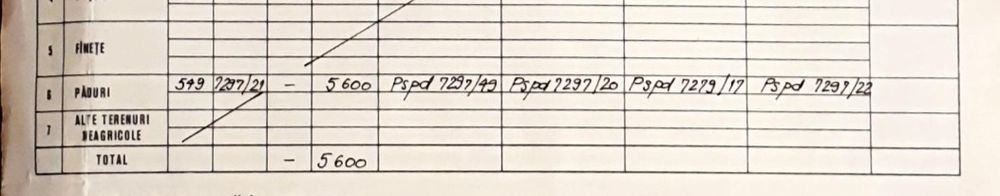 5 FÎNEȚE
6 PĂDURI 549 7297/21 – 5600 Pspd 7297/49 Pspd 7297/20 Pspd 7279/17 Pspd 7297/22
7 ALTE TERENURI
NEAGRICOLE
TOTAL – 5600